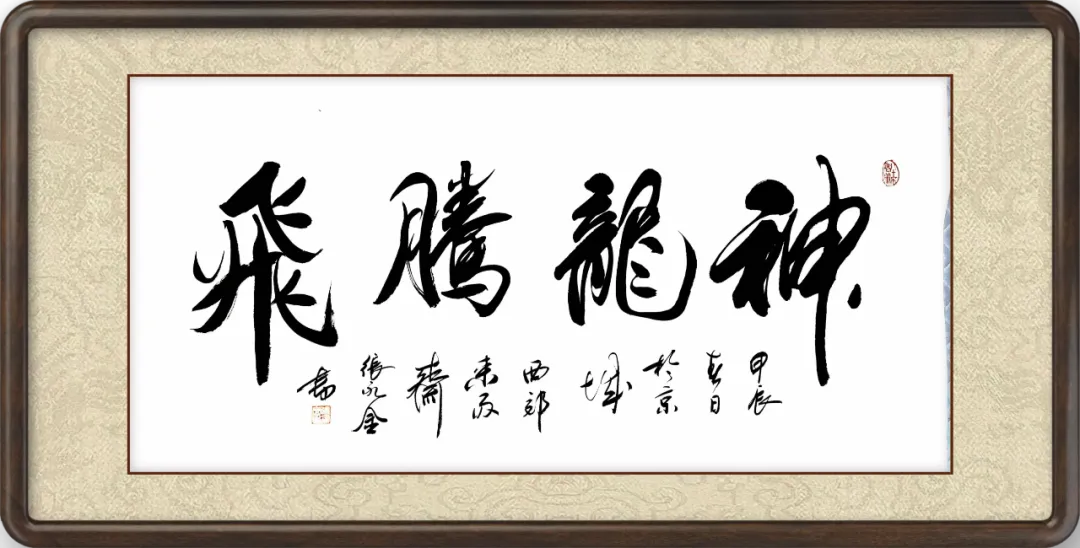 神龍騰飛
甲辰
春日
於京
城
西郊
齋
張永金
書